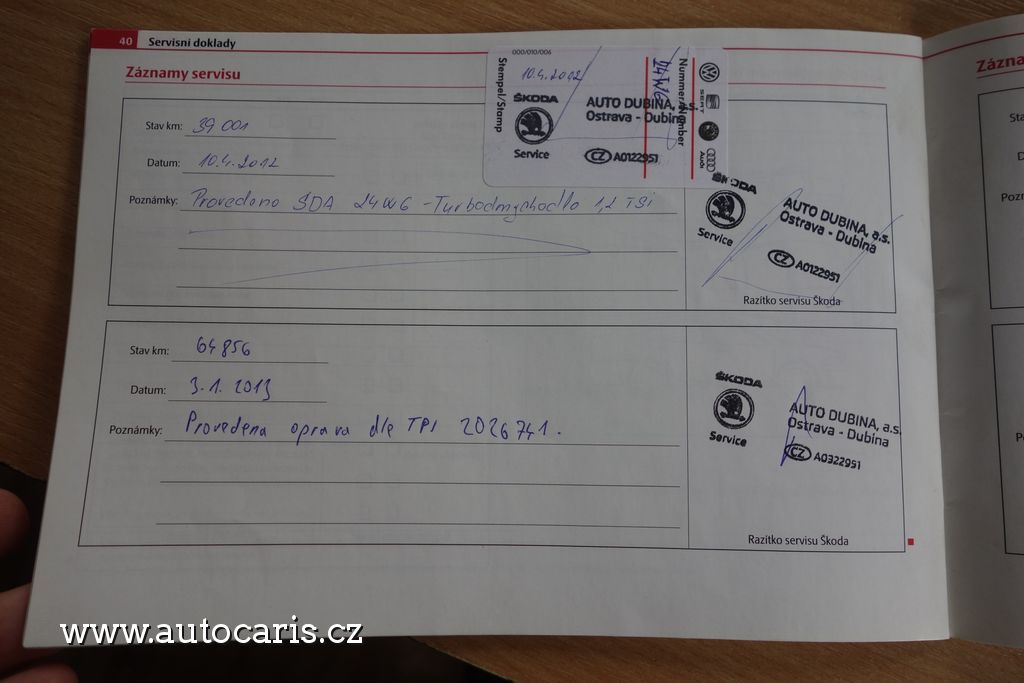 40 Servisní doklady
Záznamy servisu
000/010/006
Stempel/Stamp
10.4.2012
24W6
Nummer/Number
SEAT
Audi
ŠKODA
Service
AUTO DUBINA, a.s.
Ostrava - Dubina
CZ A0122951
Stav km: 39 001
Datum: 10.4.2012
Poznámky: Provedeno SDA 24W6 - Turbodmychadlo 1,2 TSi
ŠKODA
Service
AUTO DUBINA, a.s.
Ostrava - Dubina
CZ A0122951
Razítko servisu Škoda
Stav km: 64856
Datum: 3.1.2013
Poznámky: Provedena oprava dle TPI 2026741.
ŠKODA
Service
AUTO DUBINA, a.s.
Ostrava - Dubina
CZ A0322951
Razítko servisu Škoda
www.autocaris.cz